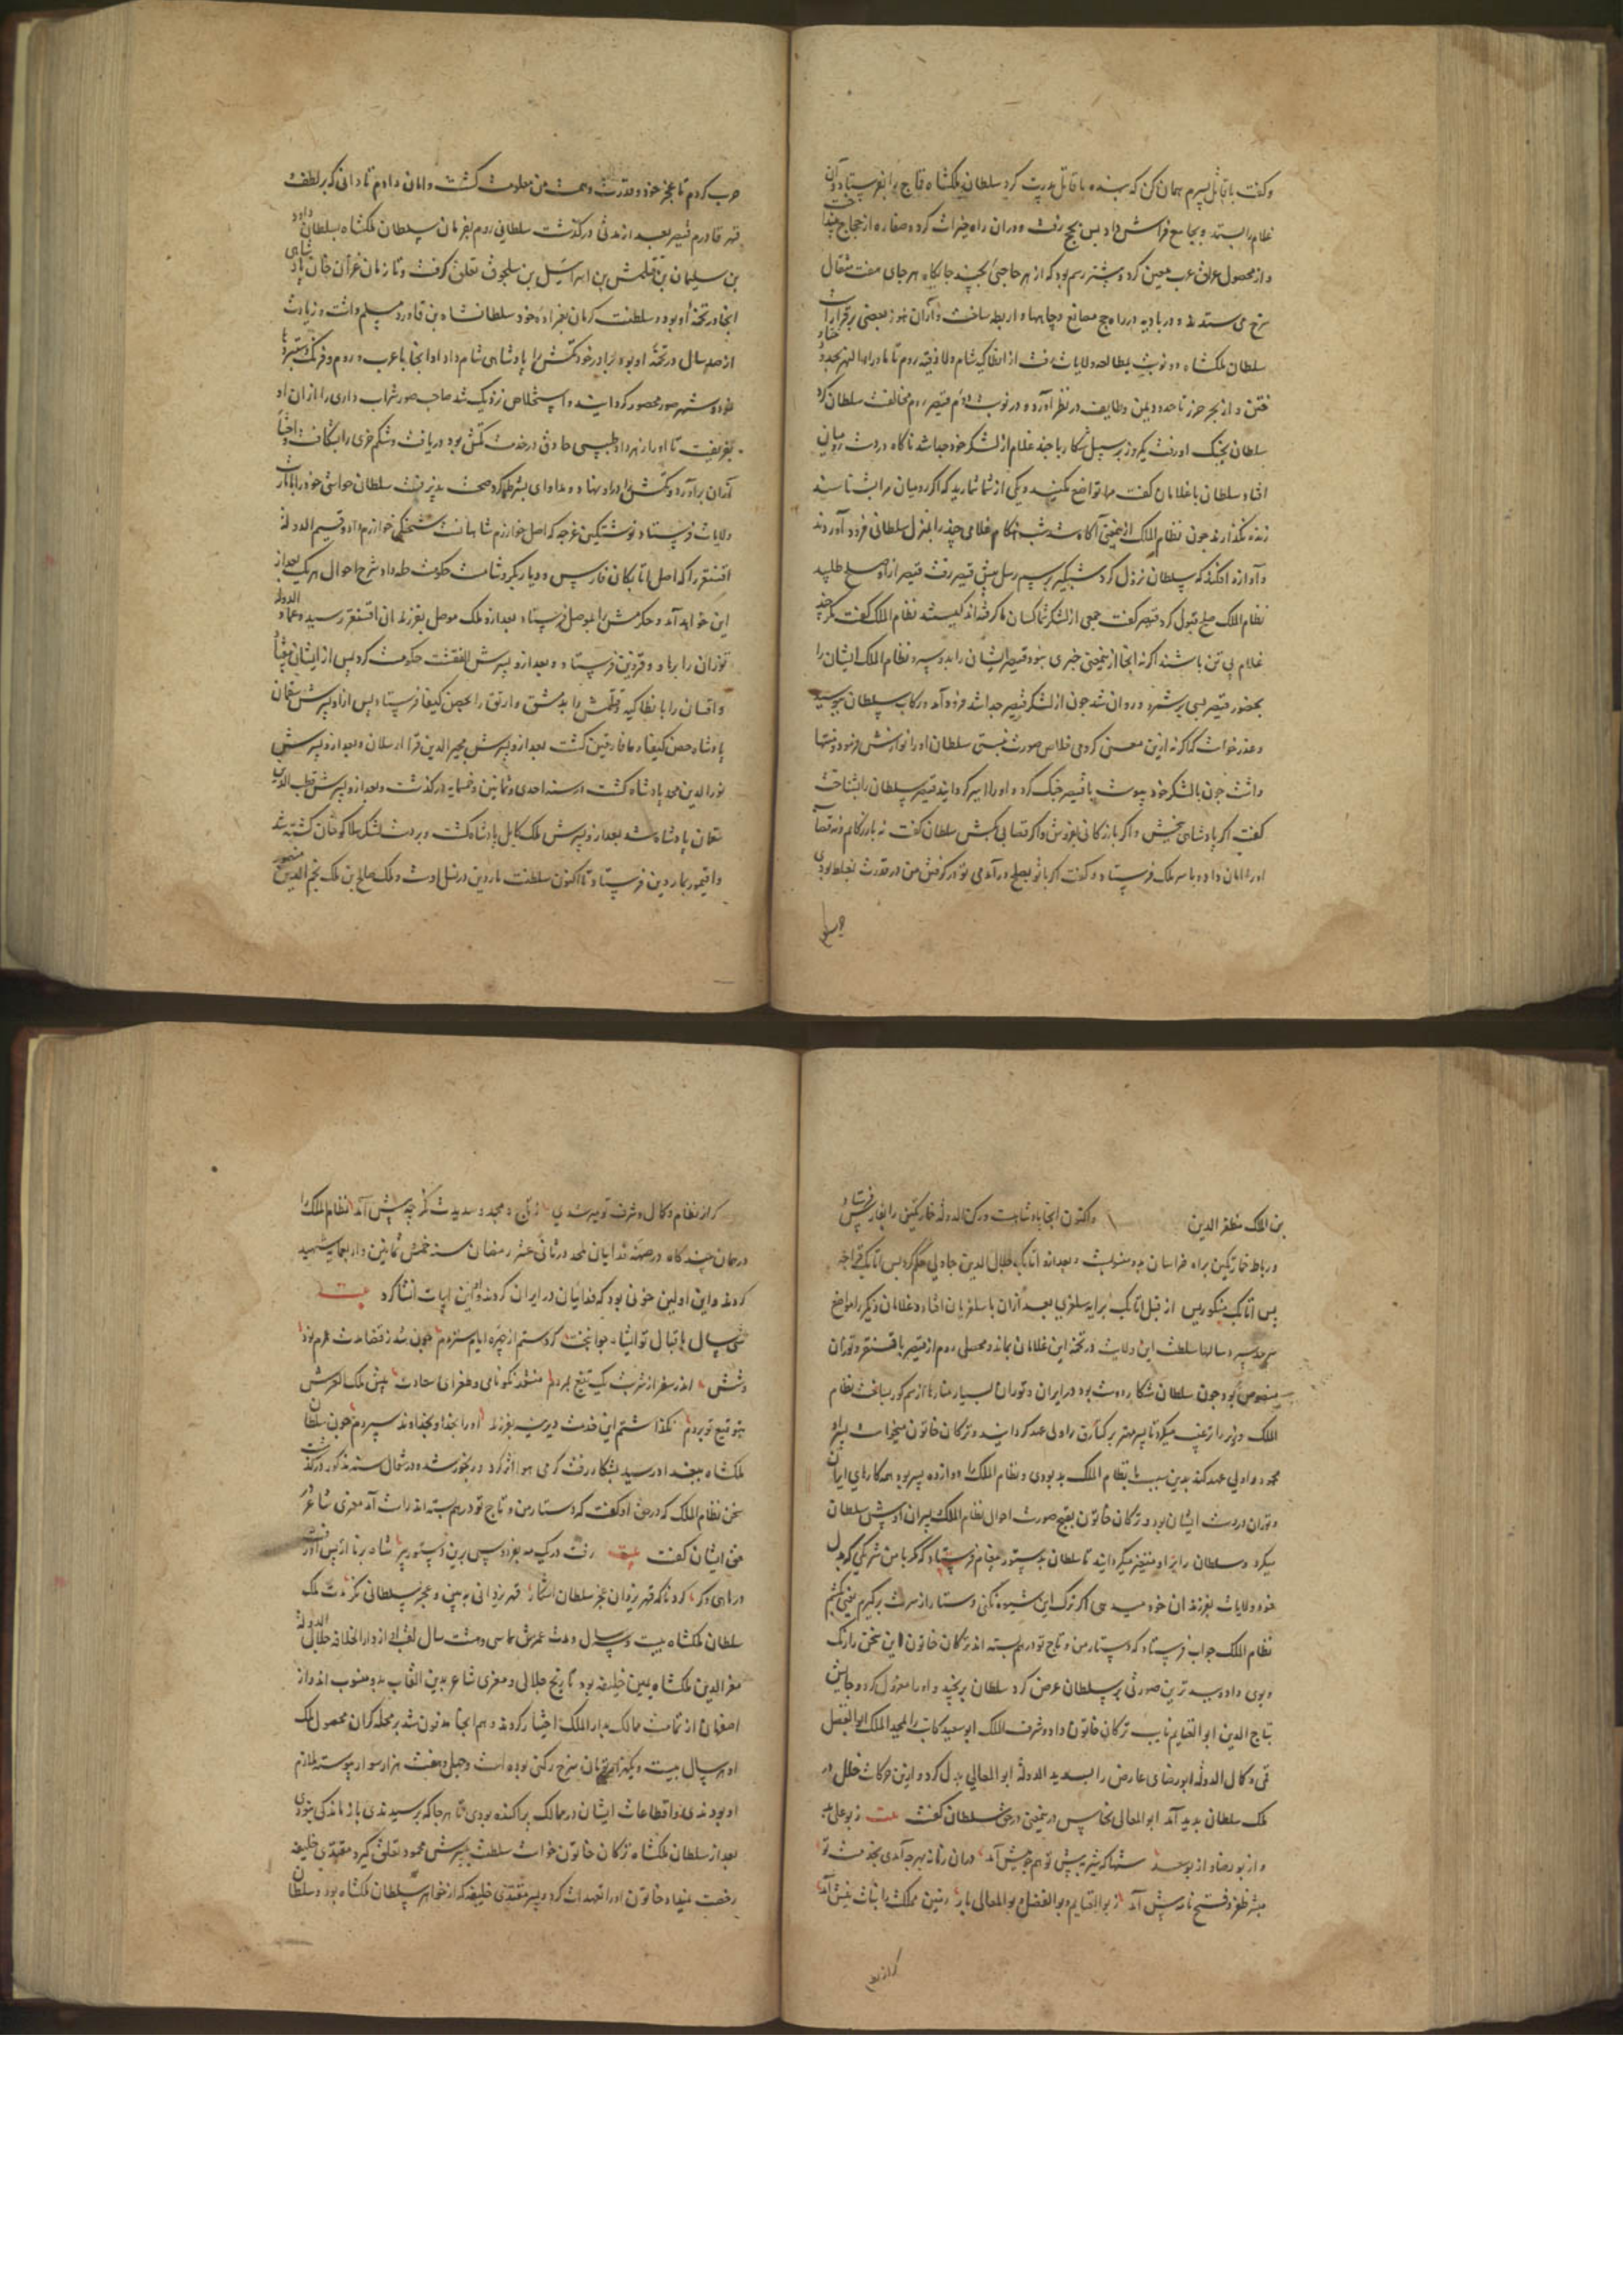 وکفت با قاتل پسرم همان کن که بنده با قاتل پدرت کرد سلطان ملکشاه قاج را بغر فرستاد و آن
غلام را بستد و بجامع فراش داد پس بحج رفت و در آن راه خیرات کرد و خفاره از حجاج بینداخت
و از محصول عراق عرب معین کرد و پیشتر رسم بود که از هر حاجی بچند جایکاه هر جای هفت مثقال
سرخ می ستدند و در بادیه در راه حج مصانع و چاهها و اربطه ساخت و از آن هنوز بعضی برقرار است
سلطان ملکشاه دو نوبت بمطالعه ولایات رفت از انطاکیه شام و لاذقیه روم تا ماوراء النهر بحدود ختا و
ختن و از بحر خزر تا حدود یمن و طایف در نظر آورد و در نوبت دوم قیصر روم مخالفت سلطان کرد
سلطان بجنک او رفت یکروز بر سبیل شکار با چند غلام از لشکر خود جدا شد ناکاه در دست رومیان
افتاد سلطان با غلامان کفت مرا تواضع مکنید و یکی از شما شمارید که اکر رومیان مرا بشناسند
زنده نکذارند چون نظام الملک از یمعنی آکاه شد شب هنکام غلامی چند را بمنزل سلطانی فرود آوردند
و آوازه افکند که سلطان نزول کرد شبکیر برسم رسل پیش قیصر رفت قیصر از او صلح طلبید
نظام الملک صلح قبول کرد قیصر کفت جمعی از لشکر شما کسان ما کرفته اند کیستند نظام الملک کفت مکر چند
غلام پی تن باشند اکرنه آنجا از یمعنی خبری نبود قیصر ایشان را بدو سپرد نظام الملک ایشان را
بحضور قیصر بسی بر شمرد و روان شد چون از لشکر قیصر جدا شد فرود آمد و رکاب سلطان ببوسید
و عذر خواست که اکرنه ازین معنی کردمی خلاص صورت نبستی سلطان او را نوازش فرمود و منتها
داشت چون با لشکر خود پیوست با قیصر جنک کرد و او را اسیر کردانید قیصر سلطان را بشناخت
کفت اکر پادشاهی ببخش و اکر بازرکانی بفروش و اکر قصابی بکش سلطان کفت نه بازرکانم و نه قصاب
او را امان داد و با سر ملک فرستاد و کفت اکر با تو بصلح در آمدمی تو در کرفتن من در قدرت بغلط بودی
حرب کردم تا عجز خود و قدرت و همت من معلومت کشت و امان دادم تا دانی که بر لطف
قهر قادرم قیصر بعد از مدتی درکذشت سلطانی روم بفرمان سلطان ملکشاه بسلطان داود
بن سلیمان بن قتلمش بن اسرائیل بن سلجوق تعلق کرفت و تا زمان غزان خان پادشاهی
آنجا در تخمه او بود و سلطنت کرمان بعمزاده خود سلطانشاه بن قاورد مسلم داشت و زیادت
از صد سال در تخمه او بود و برادر خود تتش را پادشاهی شام داد او آنجا با عرب و روم و فرنک دستبردها
نمود و شهر صور محصور کردانید و استخلاص نزدیک شد صاحب صور شراب داری را از آن او
بفریفت تا او را زهر داد طبیبی حاذق در خدمت تتش بود دریافت و شکم خری را بشکافت و احشا
از آن برآورد و تتش را در او نهاد و مداوای بشرط کرد صحت پذیرفت سلطان حواشی خود را بامارت
ولایات فرستاد نوشتکین غرجه که اصل خوارزمشاهانست شحنکی خوارزم داد و قسیم الدوله
اقسنقر را که اصل اتابکان فارس و دیاربکر و شامست حکومت حلب داد و شرح احوال هر یک بعد از
این خواهد آمد و جکرمش را بموصل فرستاد بعد ازو ملک موصل بفرزندان اقسنقر رسید و عماد الدوله
توزان را برها و قزوین فرستاد و بعد ازو پسرش القفشت حکومت کرد پس از ایشان
و اقسان را بانطاکیه و قتلمش را بدمشق و ارتق را بحصن کیفا فرستاد پس از او پسرش سقمان
پادشاه حصن کیفا و میافارقین کشت بعد ازو پسرش مجیر الدین قرا ارسلان و بعد ازو پسرش
نور الدین محمد پادشاه کشت در سنه احدی و ثمانین و خمسمایه درکذشت و بعد ازو پسرش قطب الدین
سقمان پادشاه شد بعد ازو پسرش ملک کامل پادشاه کشت و بر دست لشکر هلاکو خان کشته شد
و اقیمور بماردین فرستاد و تا اکنون سلطنت ماردین در نسل اوست و ملک صالح بن ملک نجم الدین منصور
بن الملک مظفر الدین واکنون آنجا پادشاهست و رکن الدوله خمارتکین را بفارس فرستاد و
و رباط خمارتکین براه خراسان بدو منسوبست و بعد ازو اتابک جلال الدین جاولی حکم کرد پس اتابک قراجه
پس اتابک منکوبرس از قبل اتابک برابه سلغری بعد از آن با سلغریان افتاد و غلامان دیکر را مواضع
سرحد سپرد سالها سلطنت این ولایت در تخمه این غلامان بماند و محصلی روم از قیصر باقسنقر و توران
منصوص بود چون سلطان شکار دوست بود در ایران و توران بسیار منارها از سم کور بساخت نظام
الملک وزیر را ترغیب میکرد تا پسر مهتر برکیارق را ولی عهد کردانید و ترکان خاتون میخواست پسر او
محمود را ولی عهد کند بدین سبب با نظام الملک بد بودی و نظام الملک را دوازده پسر بود همه کارهای ایران
و توران در دست ایشان بود و ترکان خاتون بقبح صورت احوال نظام الملک و پسران او پیش سلطان
میکرد و سلطان را بر او متغیر میکردانید تا سلطان بدستور پیغام فرستاد که مکر با من شریکی که بدل
خود ولایات بفرزندان خود میدهی اکر ترک این شیوه نکنی دستار از سرت برکیرم یعنی بکشم
نظام الملک جواب فرستاد که دستار من و تاج تو در هم بسته اند ترکان خاتون این سخن را رنک
و بوی داد و ببدترین صورتی بر سلطان عرض کرد سلطان برنجید و او را معزول کرد و جایش
بتاج الدین ابو الغنایم نایب ترکان خاتون داد و شرف الملک ابو سعید کاتب را بمجد الملک ابو الفضل
قمی و کمال الدوله ابو رضای عارض را بسدید الدوله ابو المعالی بدل کرد و ازین حرکات خلل در
ملک سلطان بدید آمد ابو المعالی نحاس در یمعنی در حق سلطان کفت بیت ز بو علی بد
و از بو رضا و از بو سعد شها که شیر به پیش تو هم چو میش آمد در آن زمانه بهرچه آمدی بخدمت تو
مبشر ظفر و فتح نامه پیش آمد ز بو الغنایم و بو الفضل و بو المعالی باز زمین مملکت را نبات نیش آمد
کر از نظام و کمال و شرف تو سیر شدی ز تاج و مجد و سدیدت نکر چه پیش آمد نظام الملک را
در همان چند کاه در صحنه فدائیان ملحد در ثانی عشر رمضان سنه خمس ثمانین و اربعمایه شهید
کردند و این اولین خونی بود که فدائیان در ایران کردند و او این ابیات انشا کرد بیت
سی سال باقبال تو ای شاه جوانبخت کرد ستم از چهره ایام ستردم چون شد ز قضا مدت عمرم نود
و شش اندر سفر از ضربت یک تیغ بمردم منشور نکونامی و طغرای سعادت پیش ملک العرش
بتوقیع تو بردم بکذاشتم این خدمت دیرینه بفرزند او را بخدا و بخداوند سپردم چون سلطان
ملکشاه ببغداد رسید بشکار رفت کرمی هوا اثر کرد و رنجور شد و در شوال سنه مذکور درکذشت
سخن نظام الملک که در حق او کفت که دستار من و تاج تو در هم بسته اند راست آمد معزی شاعر در
حق ایشان کفت بیت رفت در یک مه بفردوس برین دستور پیر شاه برنا از پس او رفت
در ماهی دکر کرد ناکه قهر یزدان عجز سلطان آشکار قهر یزدانی ببین و عجز سلطانی نکر مدت ملک
سلطان ملکشاه بیست و سال و مدت عمرش سی و هشت سال لقبش از دار الخلافه جلال الدوله
معز الدین ملکشاه یمین خلیفه بود تاریخ جلالی و معزی شاعر بدین القاب بدو منسوب اند و از
اصفهان از تمامت ممالک بدار الملک اختیار کردند و هم آنجا مدفون شد بمحله کران محصول ملک
او هر سال بیست و یکهزار تومان سرخ رکنی بوده است و چهل و هفت هزار سوار پیوسته ملازم
او بودندی و اقطاعات ایشان در ممالک پراکنده بودی تا هرجا که برسیدندی بازماندکی نبودی
بعد از سلطان ملکشاه ترکان خاتون خواست سلطنت بپسرش محمود تعلق کیرد مقتدی خلیفه
رخصت نمیداد خاتون او را تهدیدات کرد و پسر مقتدی خلیفه که از خواهر سلطان ملکشاه بود و سلطان